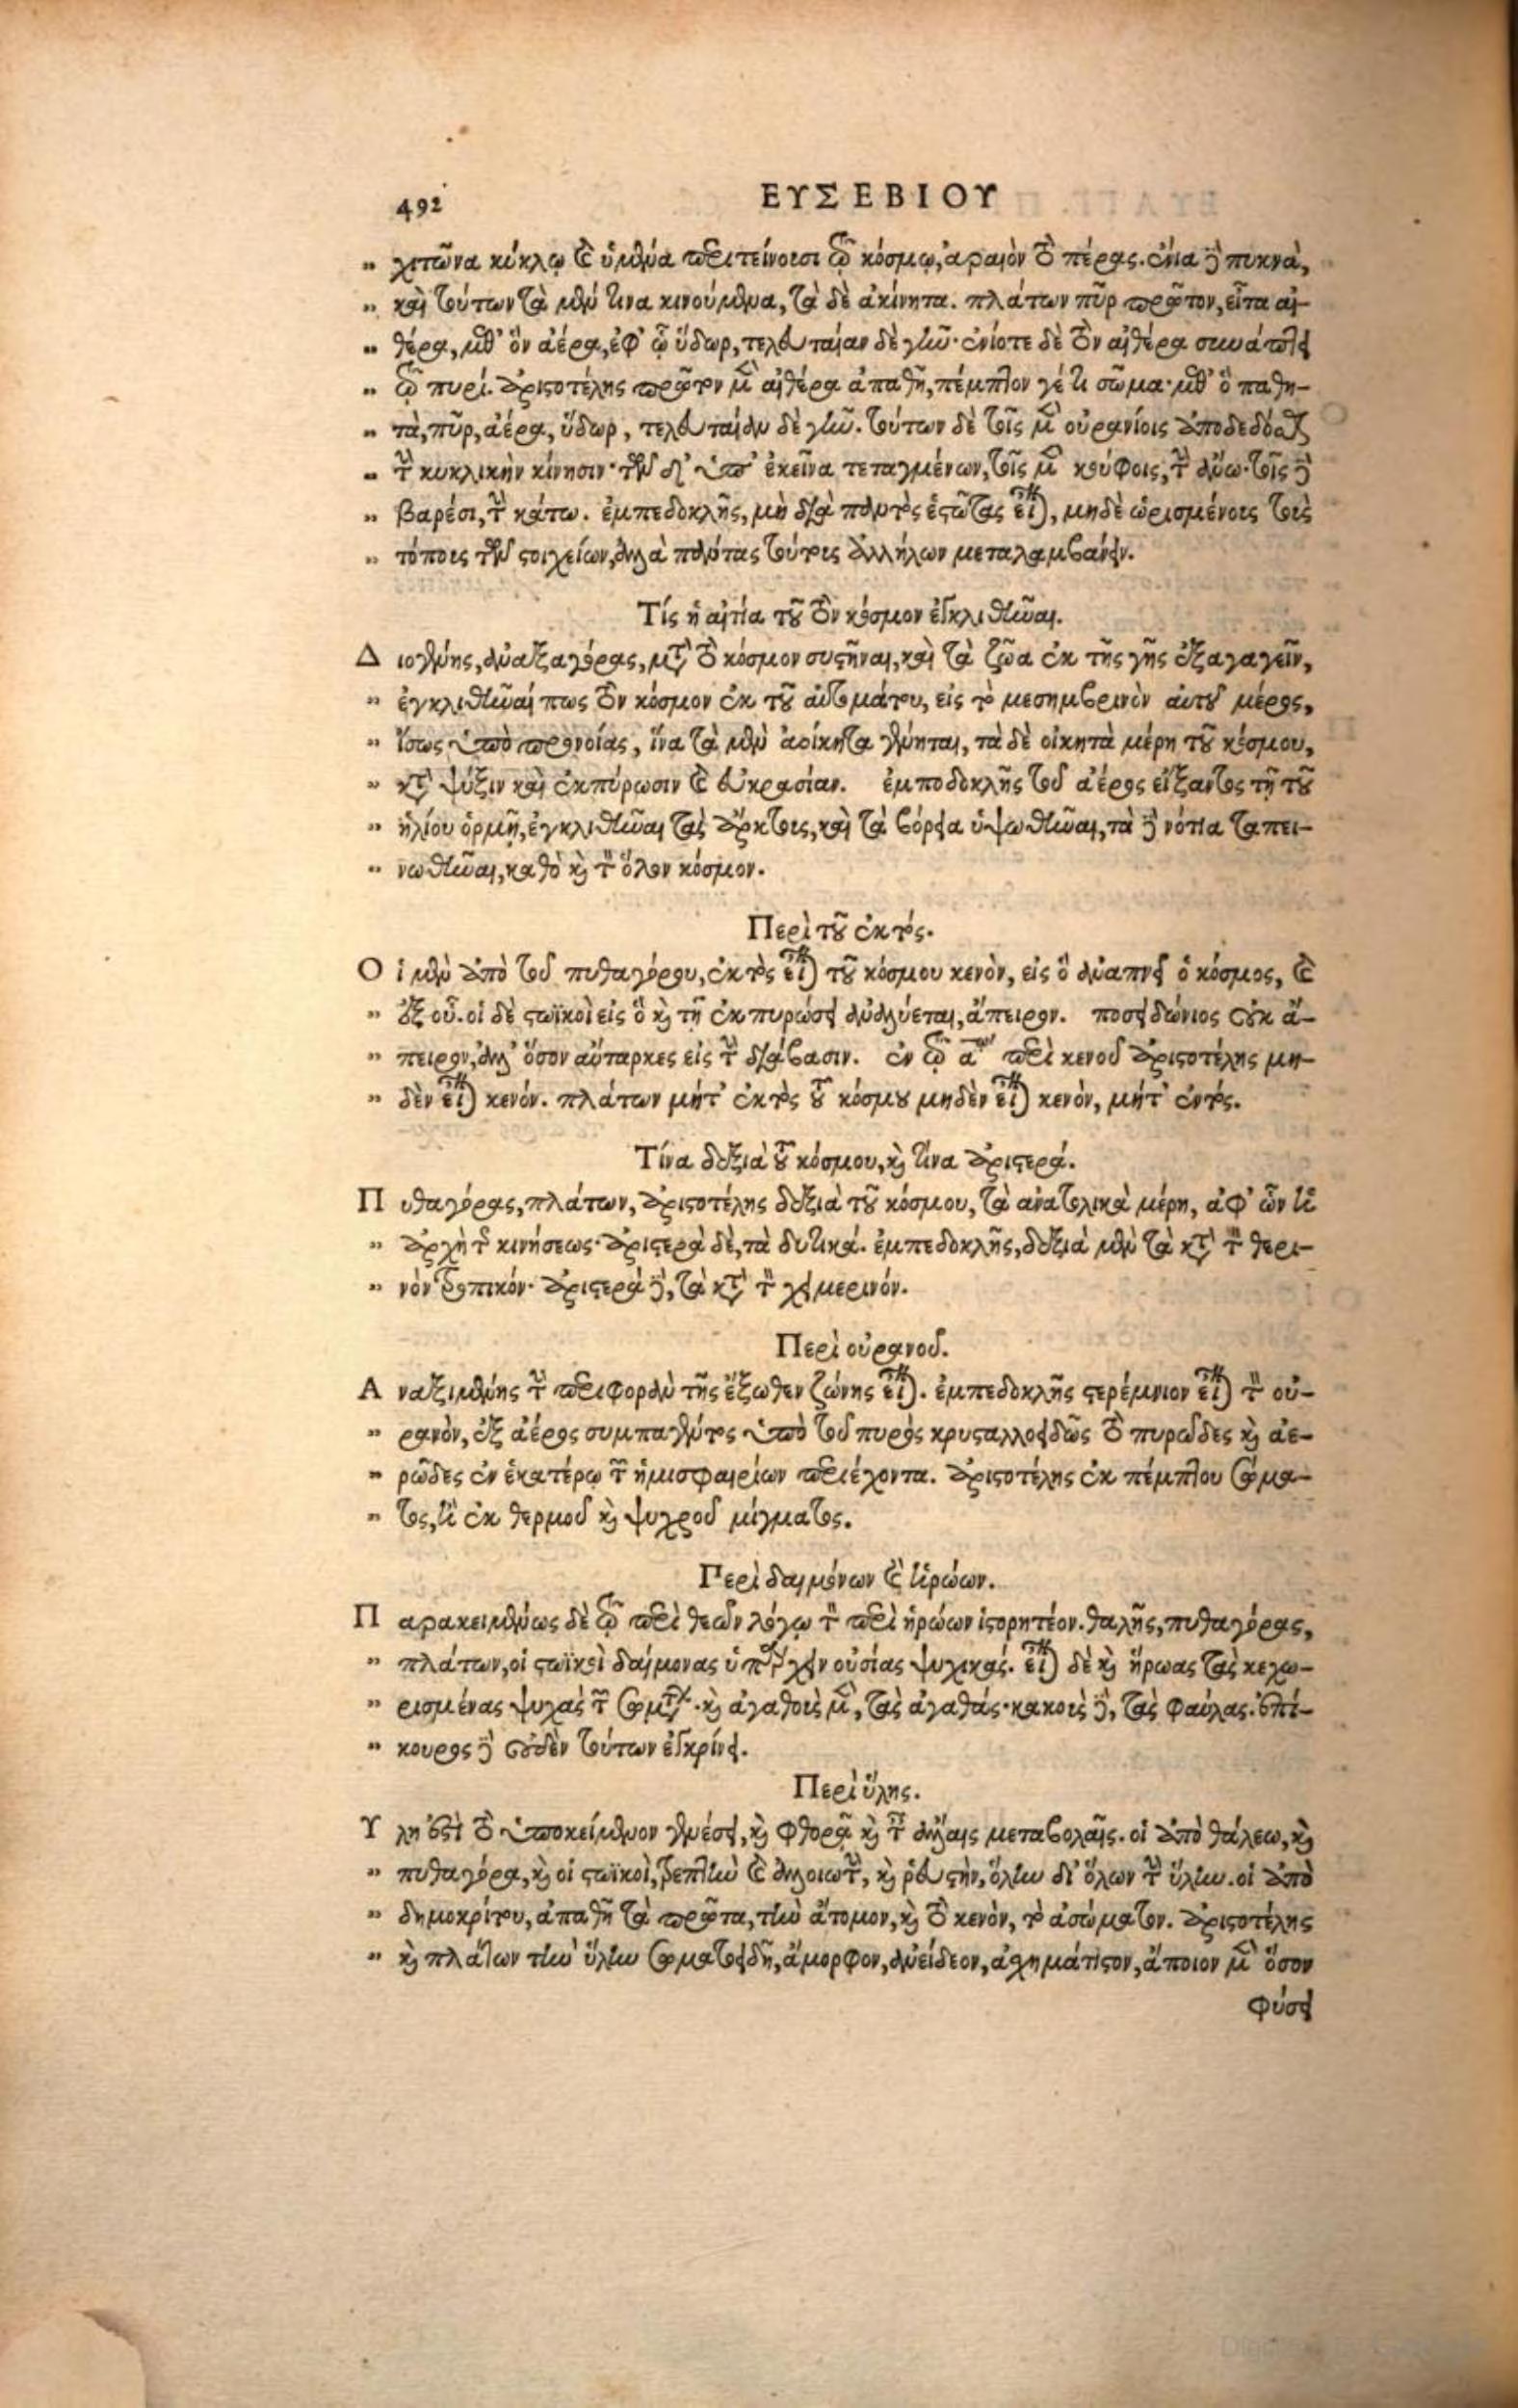 492 ΕΥΣΕΒΙΟΥ
„ χιτῶνα κύκλῳ καὶ ὑμένα περιτείνουσι τῷ κόσμῳ, ἀραιὸν τὸ πέρας. ἔνια δὲ πυκνὰ,
„ καὶ τούτων τὰ μὲν τινα κινούμενα, τὰ δὲ ἀκίνητα. πλάτων πῦρ πρῶτον, εἶτα αἰ-
„ θέρα, μεθ' ὃν ἀέρα, ἐφ' ᾧ ὕδωρ, τελευταίαν δὲ γῆν· ἐνίοτε δὲ τὸν αἰθέρα συνάπτει
„ τῷ πυρί. ἀριστοτέλης πρῶτον μὲν αἰθέρα ἀπαθῆ, πέμπτον γέ τι σῶμα· μεθ' ὃ παθη-
„ τὰ, πῦρ, ἀέρα, ὕδωρ, τελευταίαν δὲ γῆν. τούτων δὲ τοῖς μὲν οὐρανίοις ἀποδεδόσθαι
„ τὴν κυκλικὴν κίνησιν· τῶν δ' ὑπ' ἐκεῖνα τεταγμένων, τοῖς μὲν κούφοις, τὴν ἄνω· τοῖς δὲ
„ βαρέσι, τὴν κάτω. ἐμπεδοκλῆς, μὴ διὰ παντὸς ἑστῶτας εἶναι, μηδὲ ὡρισμένους τοὺς
„ τόπους τῶν στοιχείων, ἀλλὰ πάντας τούτους ἀλλήλων μεταλαμβάνειν.
Τίς ἡ αἰτία τοῦ τὸν κόσμον ἐγκλιθῆναι.
Δ ιογένης, ἀναξαγόρας, μετὰ τὸ κόσμον συστῆναι, καὶ τὰ ζῶα ἐκ τῆς γῆς ἐξαγαγεῖν,
„ ἐγκλιθῆναί πως τὸν κόσμον ἐκ τοῦ αὐτομάτου, εἰς τὸ μεσημβρινὸν αὐτοῦ μέρος,
„ ἴσως ὑπὸ προνοίας, ἵνα τὰ μὲν ἀοίκητα γένηται, τὰ δὲ οἰκητὰ μέρη τοῦ κόσμου,
„ κατὰ ψύξιν καὶ ἐκπύρωσιν καὶ εὐκρασίαν. ἐμποδοκλῆς τοῦ ἀέρος εἴξαντος τῇ τοῦ
„ ἡλίου ὁρμῇ, ἐγκλιθῆναι τὰς ἄρκτους, καὶ τὰ βόρεια ὑψωθῆναι, τὰ δὲ νότια ταπει-
„ νωθῆναι, καθὸ καὶ τὸν ὅλον κόσμον.
Περὶ τοῦ ἐκτός.
Ο ἱ μὲν ἀπὸ τοῦ πυθαγόρου, ἐκτὸς εἶναι τοῦ κόσμου κενὸν, εἰς ὃ ἀναπνεῖ ὁ κόσμος, καὶ
„ ἐξ οὗ. οἱ δὲ στωϊκοὶ εἰς ὃ καὶ τῇ ἐκπυρώσει ἀναλύεται, ἄπειρον. ποσειδώνιος οὐκ ἄ-
„ πειρον, ἀλλ' ὅσον αὔταρκες εἰς τὴν διάβασιν. ἐν τῷ αῳ περὶ κενοῦ ἀριστοτέλης μη-
„ δὲν εἶναι κενόν. πλάτων μήτ' ἐκτὸς τοῦ κόσμου μηδὲν εἶναι κενὸν, μήτ' ἐντός.
Τίνα δεξιὰ τοῦ κόσμου, καὶ τίνα ἀριστερά.
Π υθαγόρας, πλάτων, ἀριστοτέλης δεξιὰ τοῦ κόσμου, τὰ ἀνατολικὰ μέρη, ἀφ' ὧν ἡ
„ ἀρχὴ τῆς κινήσεως· ἀριστερὰ δὲ, τὰ δυτικά. ἐμπεδοκλῆς, δεξιὰ μὲν τὰ κατὰ τὸν θερι-
„ νὸν τροπικόν· ἀριστερὰ δὲ, τὰ κατὰ τὸν χειμερινόν.
Περὶ οὐρανοῦ.
Α ναξιμένης τὴν περιφορὰν τῆς ἔξωθεν ζώνης εἶναι. ἐμπεδοκλῆς στερέμνιον εἶναι τὸν οὐ-
„ ρανὸν, ἐξ ἀέρος συμπαγέντος ὑπὸ τοῦ πυρὸς κρυσταλλοειδῶς τὸ πυρῶδες καὶ ἀε-
„ ρῶδες ἐν ἑκατέρῳ τῶν ἡμισφαιρίων περιέχοντα. ἀριστοτέλης ἐκ πέμπτου σώμα-
„ τος, ἢ ἐκ θερμοῦ καὶ ψυχροῦ μίγματος.
Περὶ δαιμόνων καὶ ἡρώων.
Π αρακειμένως δὲ τῷ περὶ θεῶν λόγῳ τὸν περὶ ἡρώων ἱστορητέον. θαλῆς, πυθαγόρας,
„ πλάτων, οἱ στωϊκοὶ δαίμονας ὑπάρχειν οὐσίας ψυχικάς. εἶναι δὲ καὶ ἥρωας τὰς κεχω-
„ ρισμένας ψυχὰς τῶν σωμάτων· καὶ ἀγαθοὺς μὲν, τὰς ἀγαθάς· κακοὺς δὲ, τὰς φαύλας. ἐπί-
„ κουρος δὲ οὐδὲν τούτων ἐγκρίνει.
Περὶ ὕλης.
Υ λη ἐστὶ τὸ ὑποκείμενον γενέσει, καὶ φθορᾷ καὶ ταῖς ἄλλαις μεταβολαῖς. οἱ ἀπὸ θάλεω, καὶ
„ πυθαγόρα, καὶ οἱ στωϊκοὶ, τρεπτὴν καὶ ἀλλοιωτὴν, καὶ ῥευστὴν, ὅλην δι' ὅλων τὴν ὕλην. οἱ ἀπὸ
„ δημοκρίτου, ἀπαθῆ τὰ πρῶτα, τὴν ἄτομον, καὶ τὸ κενὸν, τὸ ἀσώματον. ἀριστοτέλης
„ καὶ πλάτων τὴν ὕλην σωματοειδῆ, ἄμορφον, ἀνείδεον, ἀσχημάτιστον, ἄποιον μὲν ὅσον
φύσει